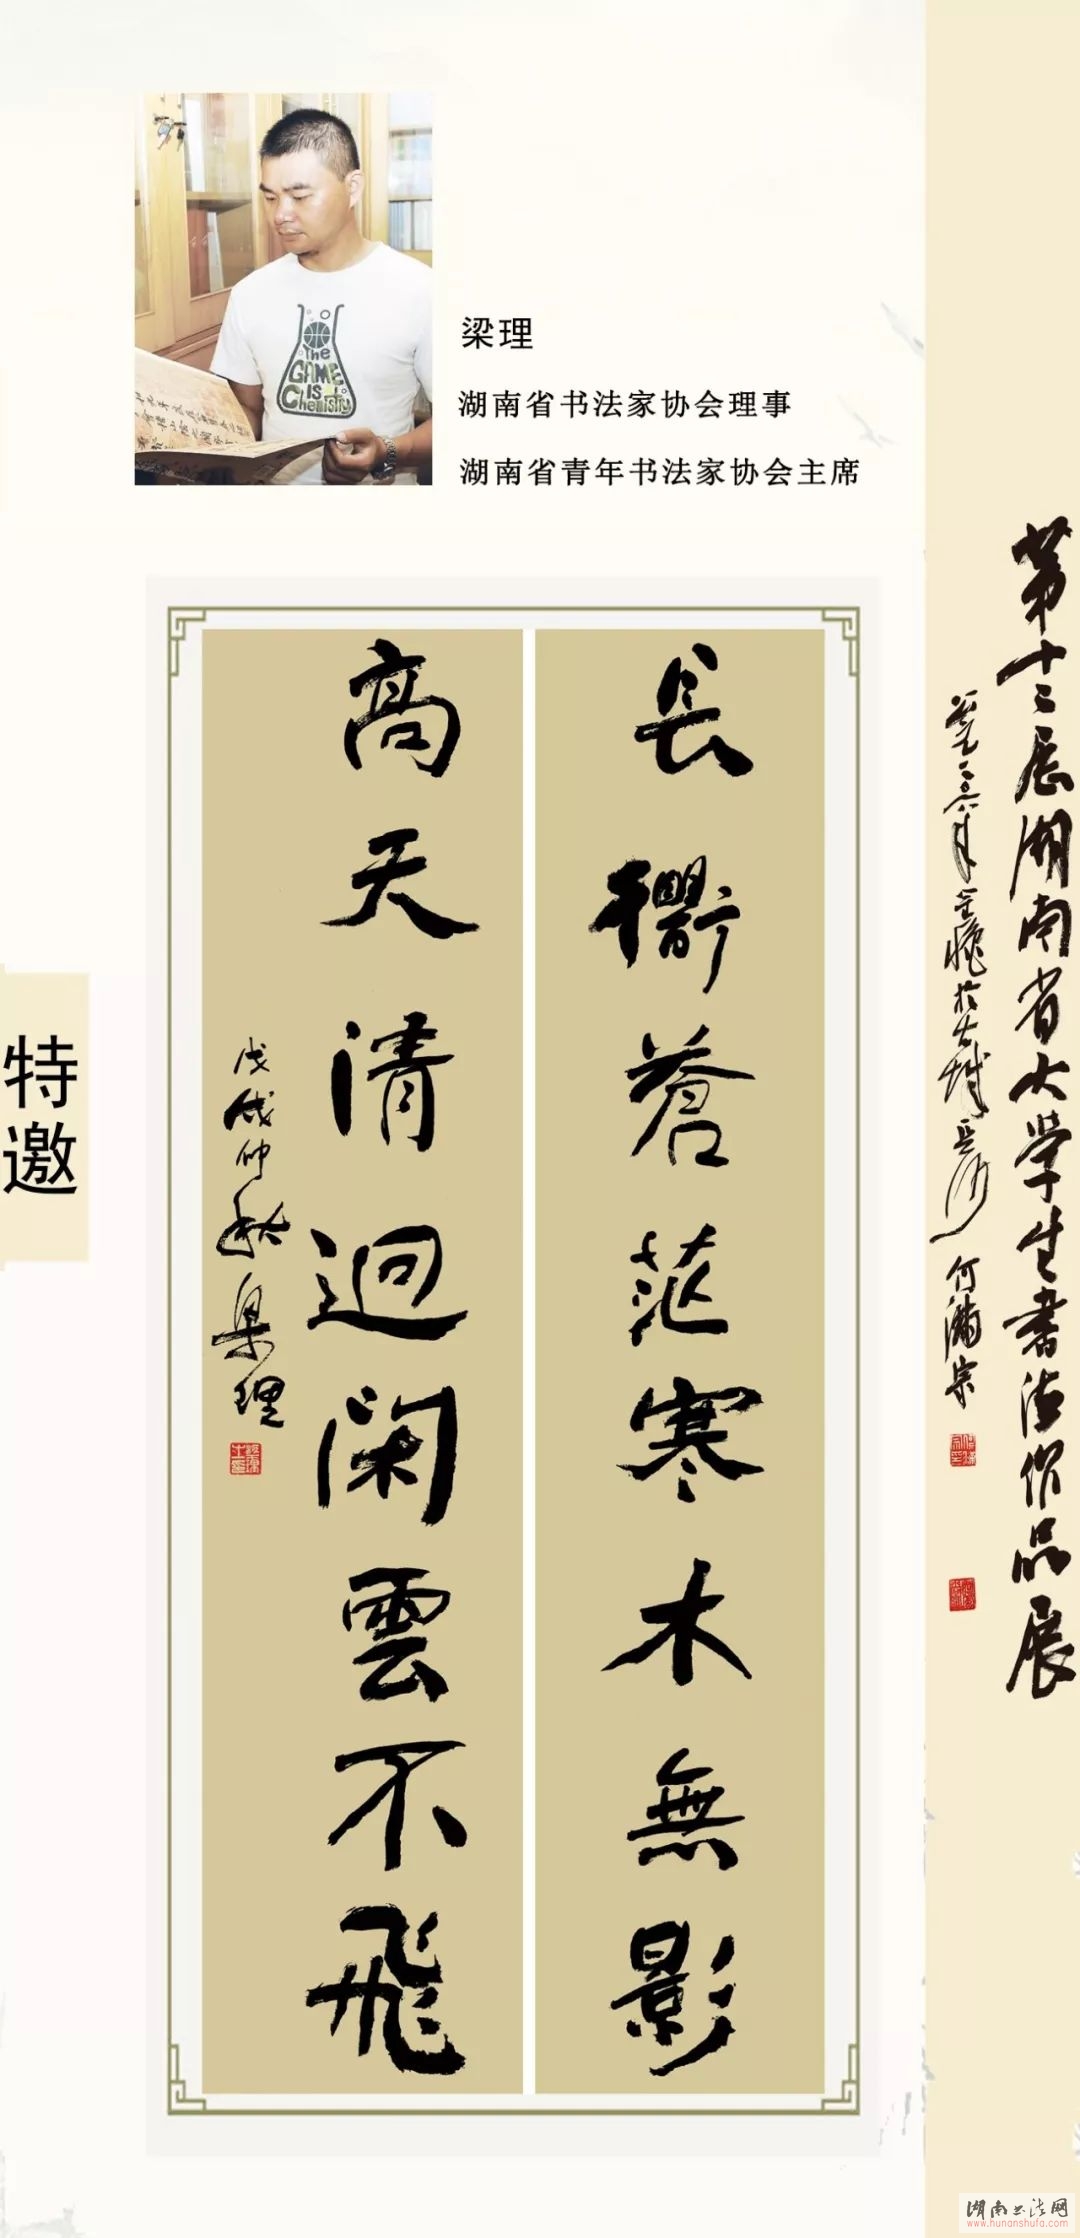 梁理
湖南省书法家协会理事
湖南省青年书法家协会主席
The
GAME
is
Chemistry
特邀
长衢苍茫寒木無影
高天清迥闲雲不飛
戊戌仲秋梁理
第十二届湖南省大学生書法作品展
何满宗
湖南书法网
www.hunanshufa.com